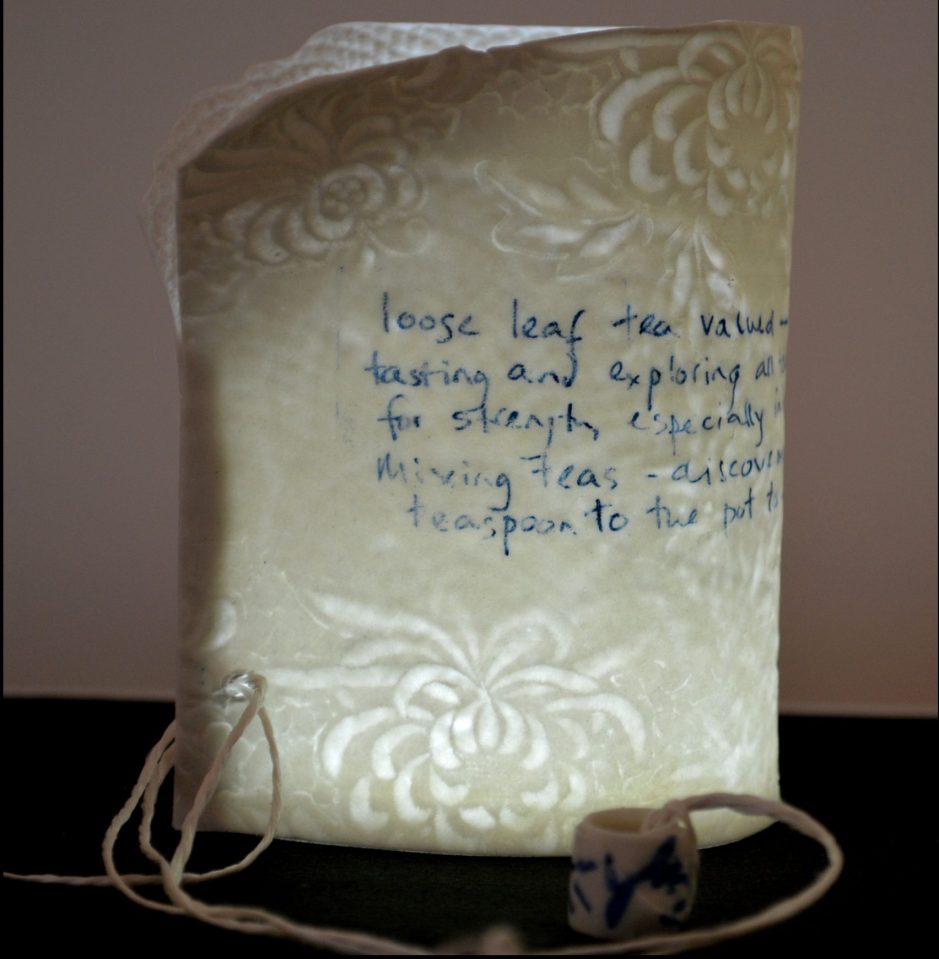 loose leaf tea valued-
tasting and exploring an
for strength, especially in
Mixing Teas - discove
teaspoon to the pot to